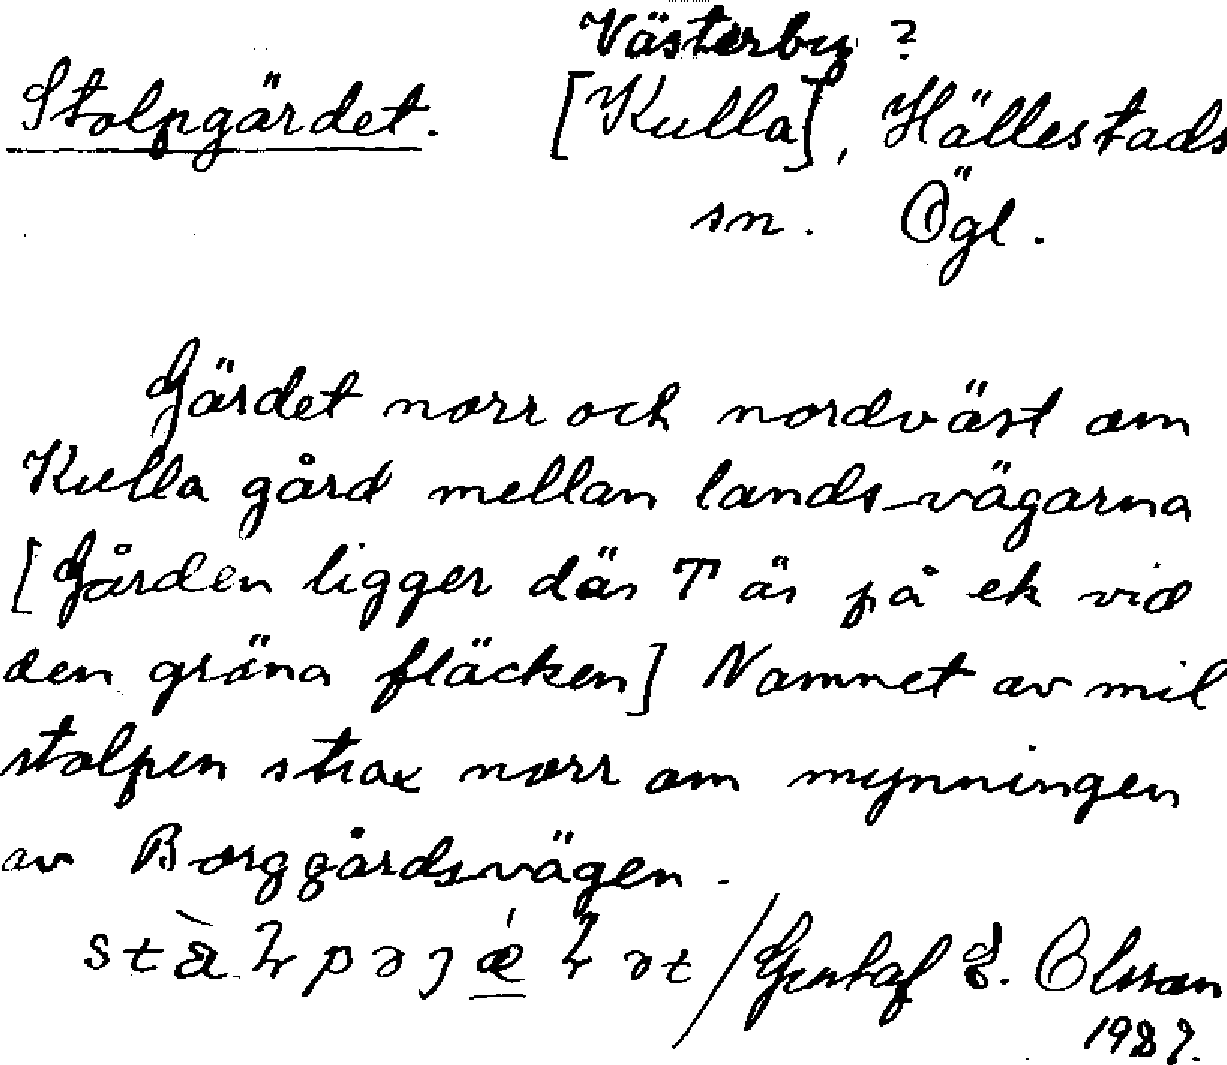 Västerby ?
Stolpgärdet. [Kulla], Hällestads
sn. Ögl.
Gärdet norr och nordväst om
Kulla gård mellan landsvägarna
[Gården ligger där T är på ek vid
den gröna fläcken] Namnet av mil
stolpen strax norr om mynningen
av Borggårdsvägen.
/Gustaf E. Olsson